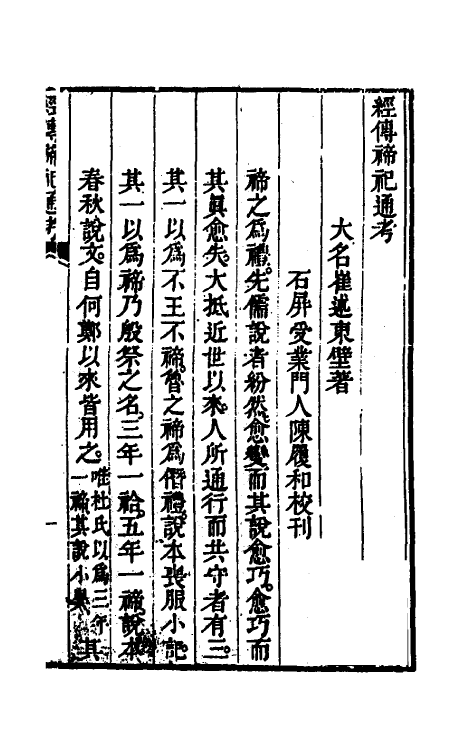 經傳禘祀通考
大名崔述東壁著
石屏受業門人陳履和校刊
禘之爲禮先儒說者紛然愈變而其說愈巧愈巧而
其眞愈失大抵近世以來人所通行而共守者有三
其一以爲不王不禘魯之禘爲僭禮說本喪服小記
其一以爲禘乃殷祭之名三年一祫五年一禘說本
春秋說文自何鄭以來皆用之唯杜氏以爲三年一禘其說小異其
經傳禘祀通考 一